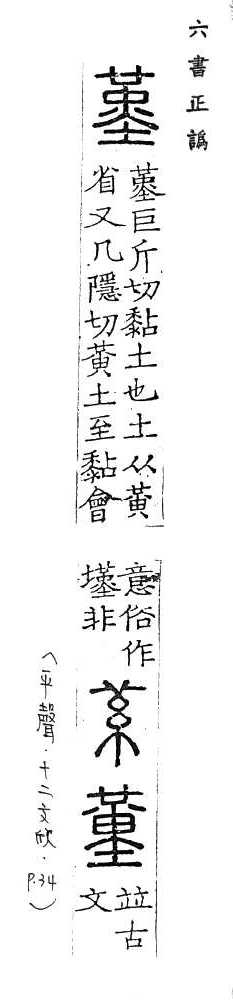 六書正譌
堇巨斤切黏土也土从黃
省又几隱切黃土至黏會
意俗作
墐非
竝古
文
（平聲．十二文欣．P.34）